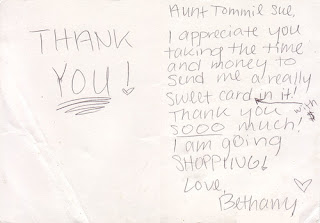 THANK
YOU!
Aunt Tommil Sue,
I appreciate you
taking the time
and money to
send me a really
sweet card in it!
with
$
Thank you
SOOO much!
I am going
SHOPPING!
Love,
Bethany